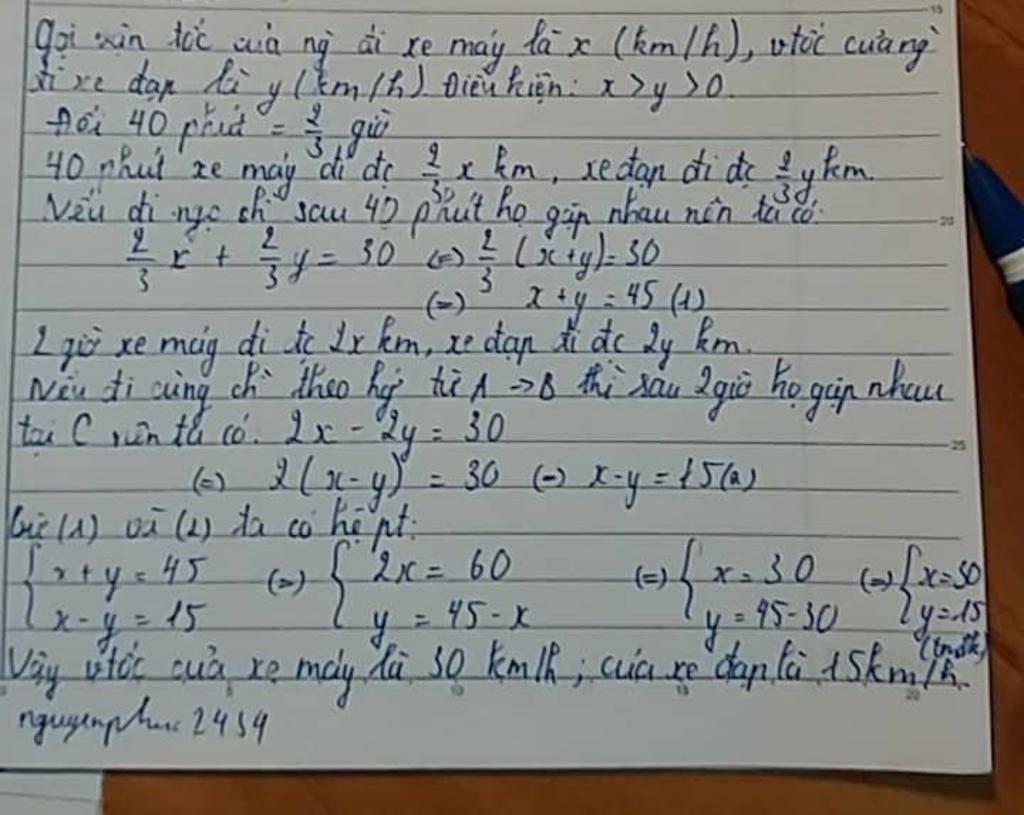 Gọi vận tốc của ng đi xe máy là x (km/h), vtốc của ng
đi xe đạp là y (km/h). Điều kiện: x > y > 0.
Đổi 40 phút = 2/3 giờ
40 phút xe máy đi đc 2/3 x km, xe đạp đi đc 2/3 y km.
Nếu đi ngc ch` sau 40 phút họ gặp nhau nên ta có:
2/3 x + 2/3 y = 30 (=) 2/3 (x+y) = 30
(=) x + y = 45 (1)
2 giờ xe máy đi đc 2x km, xe đạp đi đc 2y km.
Nếu đi cùng ch` theo hg từ A -> B thì sau 2 giờ họ gặp nhau
tại C nên ta có: 2x - 2y = 30
(=) 2(x - y) = 30 (=) x - y = 15 (2)
Từ (1) và (2) ta có hệ pt:
{ x + y = 45 (=) { 2x = 60 (=) { x = 30 (=) { x = 30
x - y = 15 y = 45 - x y = 45 - 30 y = 15
(tmđk)
Vậy vtốc của xe máy là 30 km/h; của xe đạp là 15 km/h.
nguyenphuc2434